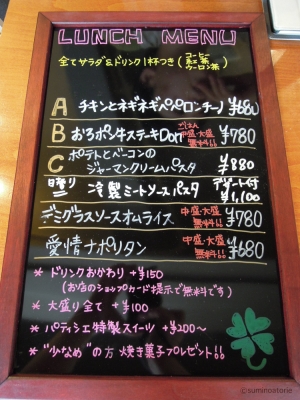 LUNCH MENU
全てサラダ&ドリンク1杯つき(コーヒー 紅茶 ウーロン茶)
A チキンとネギネギペペロンチーノ ¥680
B おろポン牛ステーキDon ごはん中盛・大盛無料!! ¥780
C ポテトとベーコンのジャーマンクリームパスタ ¥880
日替り 冷製ミートソースパスタ デザート付 ¥1,100
デミグラスソースオムライス 中盛・大盛無料!! ¥780
愛情ナポリタン 中盛・大盛無料!! ¥680
* ドリンクおかわり +¥150
(お店のショップカード提示で無料です)
* 大盛り全て +¥100
* パティシエ特製スイーツ +¥200〜
* "少なめ"の方 焼き菓子プレゼント!!
©suminotorie